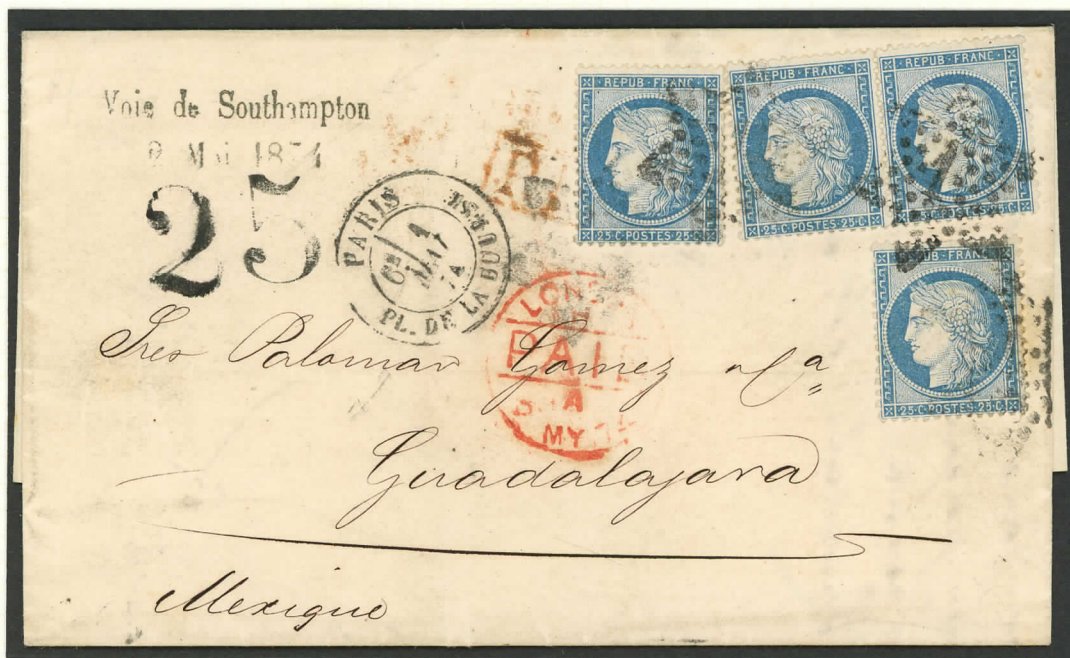 Voie de Southampton
2 Mai 1874
25
PARIS
PL. DE LA BOURSE
6E
1
MAI
74
REPUB·FRANC·
25·C·POSTES·25·C·
REPUB·FRANC·
25·C·POSTES·25·C·
REPUB·FRANC·
25·C·POSTES·25·C·
REPUB·FRANC·
25·C·POSTES·25·C·
PAID
MY
Sres Palomar Gomez y Ca
Guadalajara
Mexique